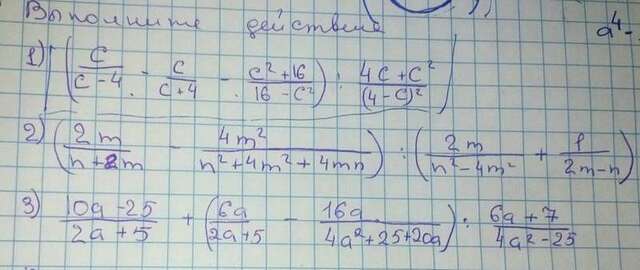 Выполните действие a⁴-
1) (c/(c-4) - c/(c+4) - (c²+16)/(16-c²)) : (4c+c²)/(4-c)²
2) (2m/(n+2m) - 4m²/(n²+4m²+4mn)) : (2m/(n²-4m²) + 1/(2m-n))
3) (10a-25)/(2a+5) + (6a/(2a+5) - 16a/(4a²+25+20a)) : (6a+7)/(4a²-25)